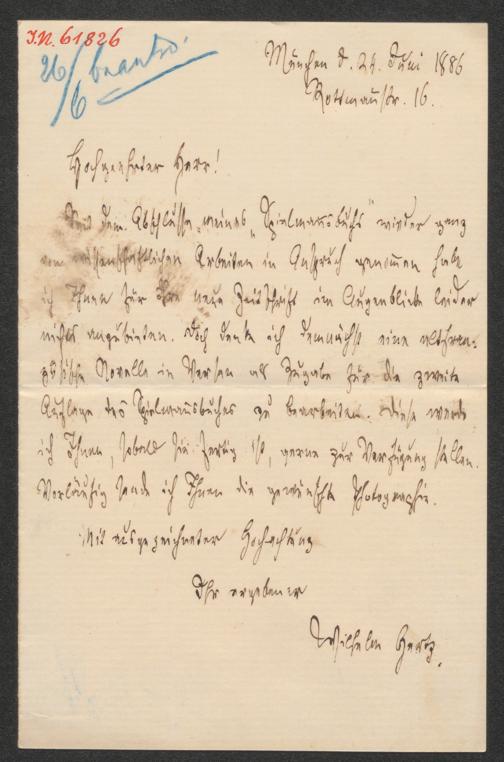 I.N. 61826
26/6 beantw.
München d. 24. Juni 1886
Rottmannstr. 16.
Hochgeehrter Herr!
Seit dem Abschlusse meines „Spielmannsbuchs" wieder ganz
von wissenschaftlichen Arbeiten in Anspruch genommen habe
ich Ihnen für Ihre neue Zeitschrift im Augenblicke leider
nichts anzubieten. Doch denke ich demnächst eine altfran-
zösische Novelle in Versen als Zugabe für die zweite
Auflage des Spielmannsbuches zu bearbeiten. Diese werde
ich Ihnen, sobald sie fertig ist, gerne zur Verfügung stellen.
Vorläufig sende ich Ihnen die gewünschte Photographie.
Mit ausgezeichneter Hochachtung
Ihr ergebener
Wilhelm Hertz.